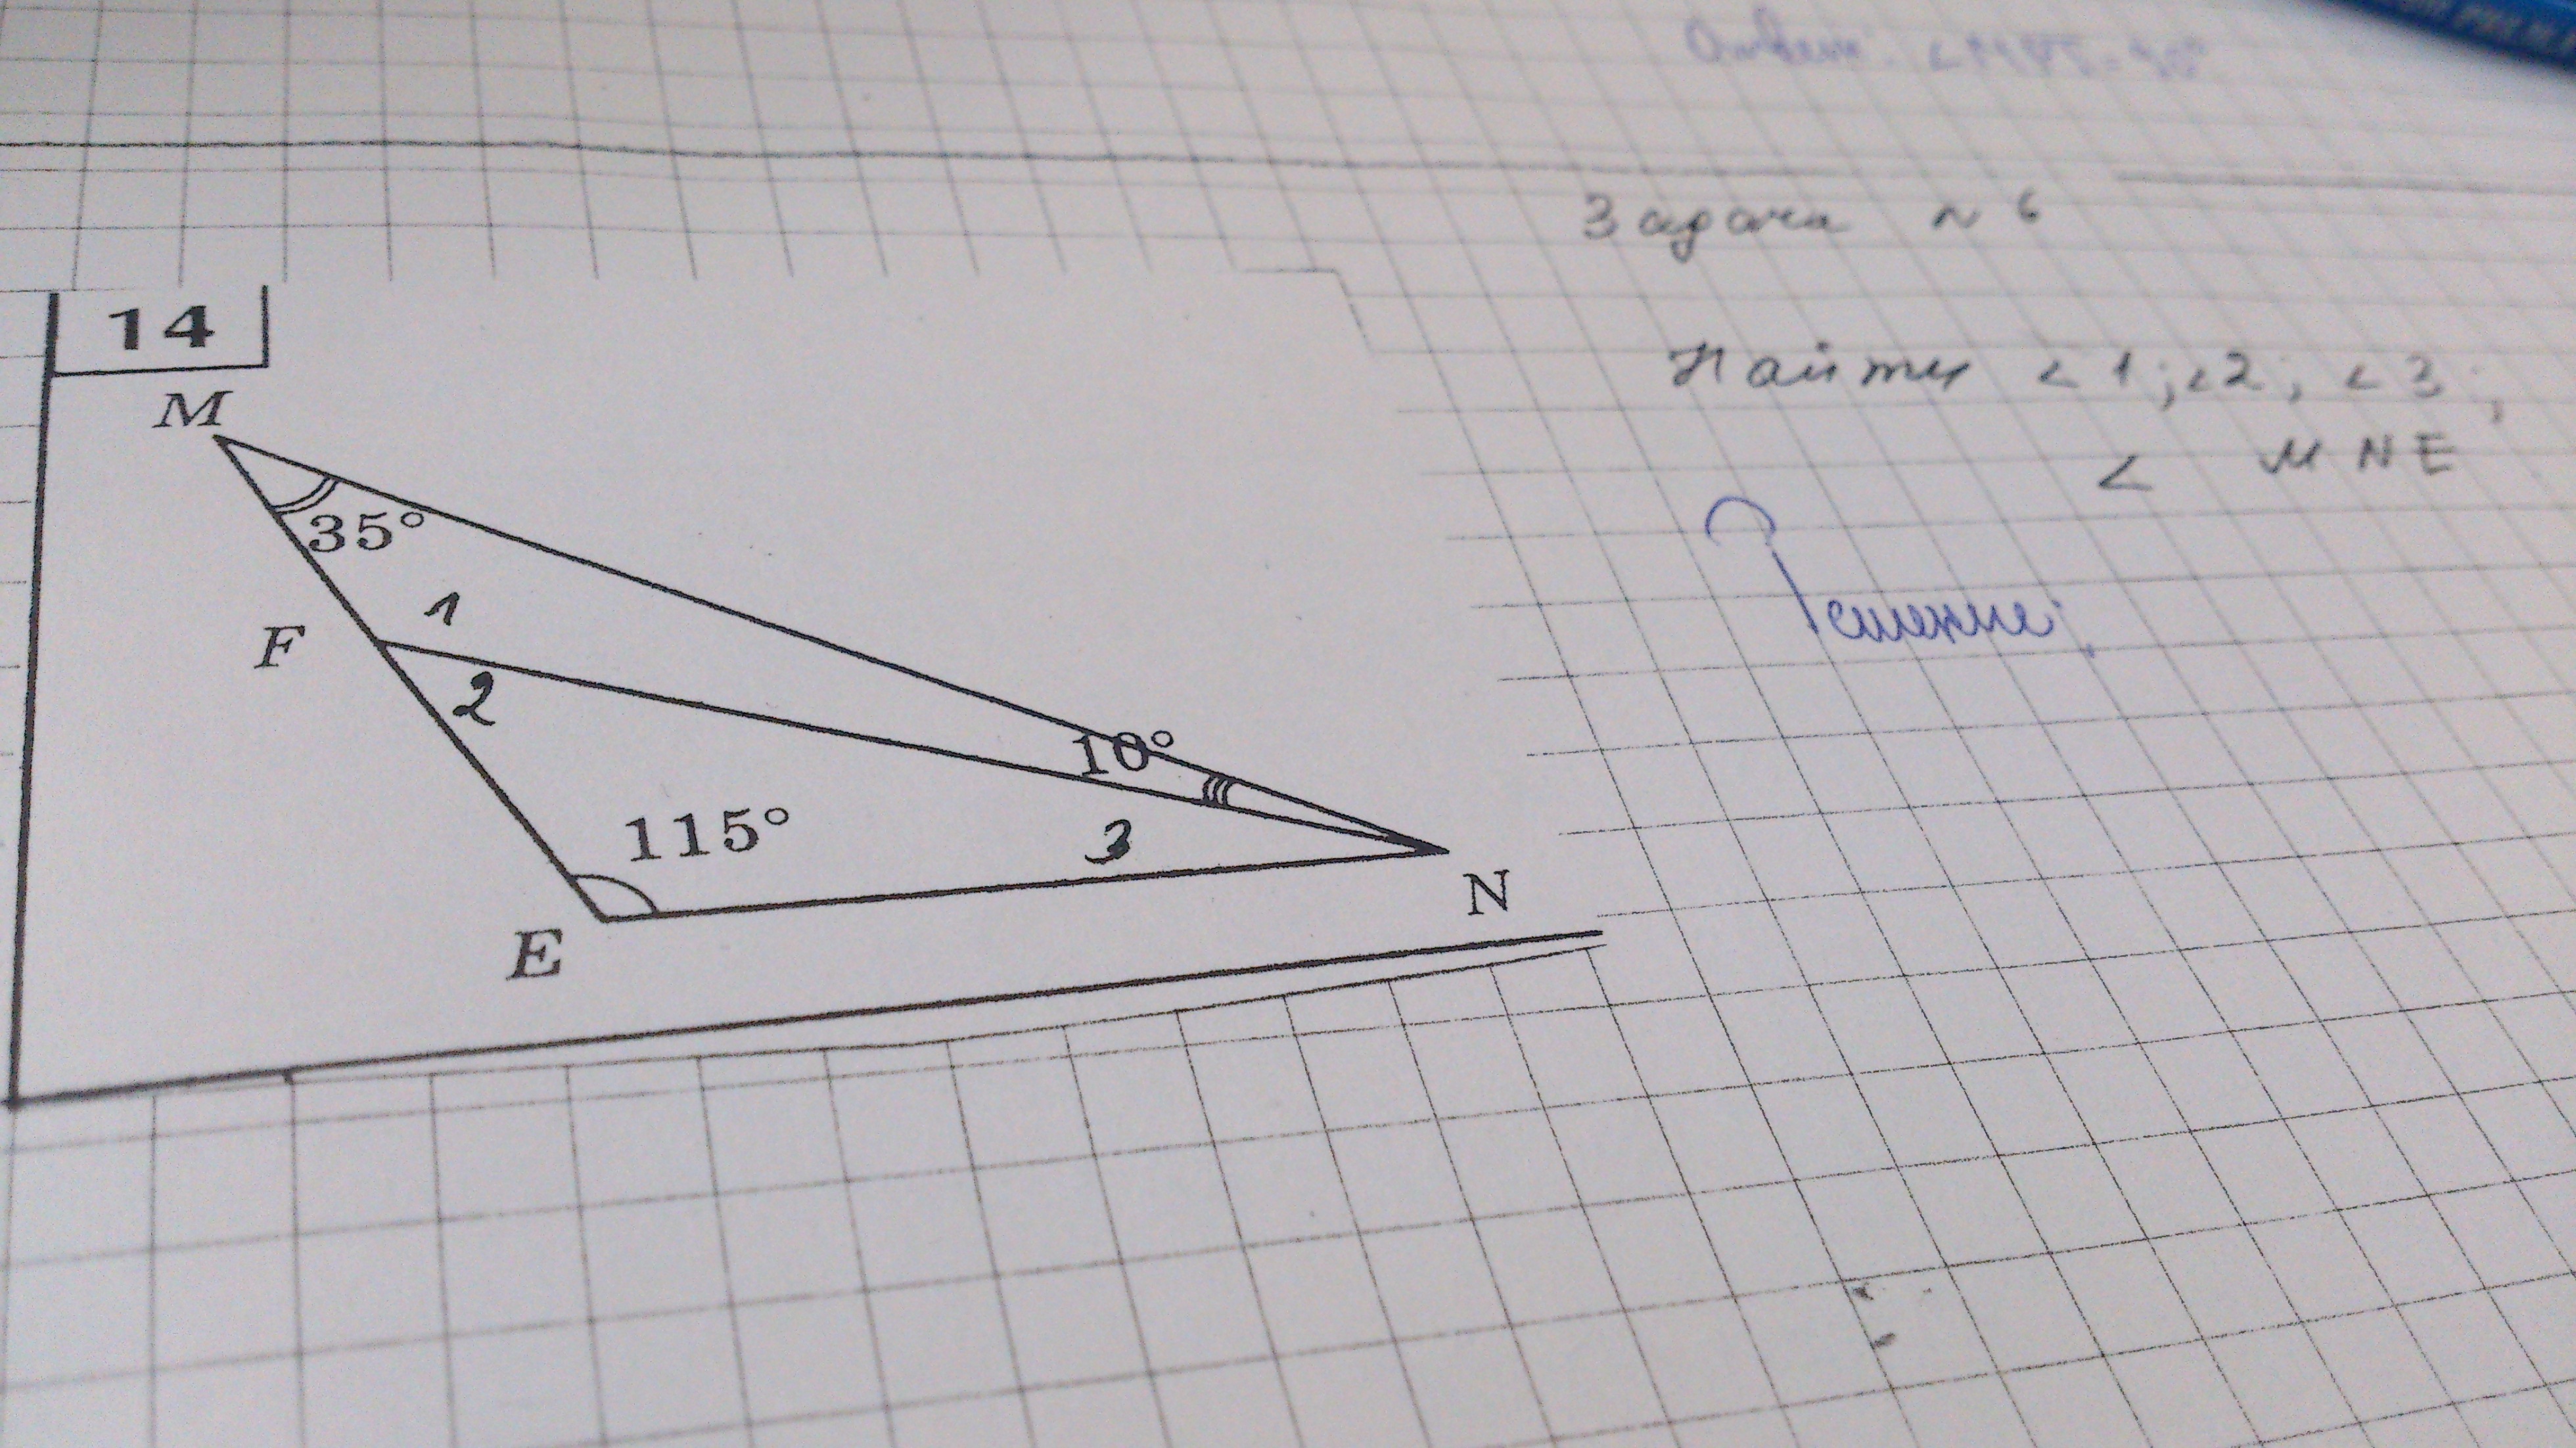 Задача № 6
14
Найти <1; <2; <3;
< MNE
M
35°
Решение:
1
F
2
10°
115°
3
N
E